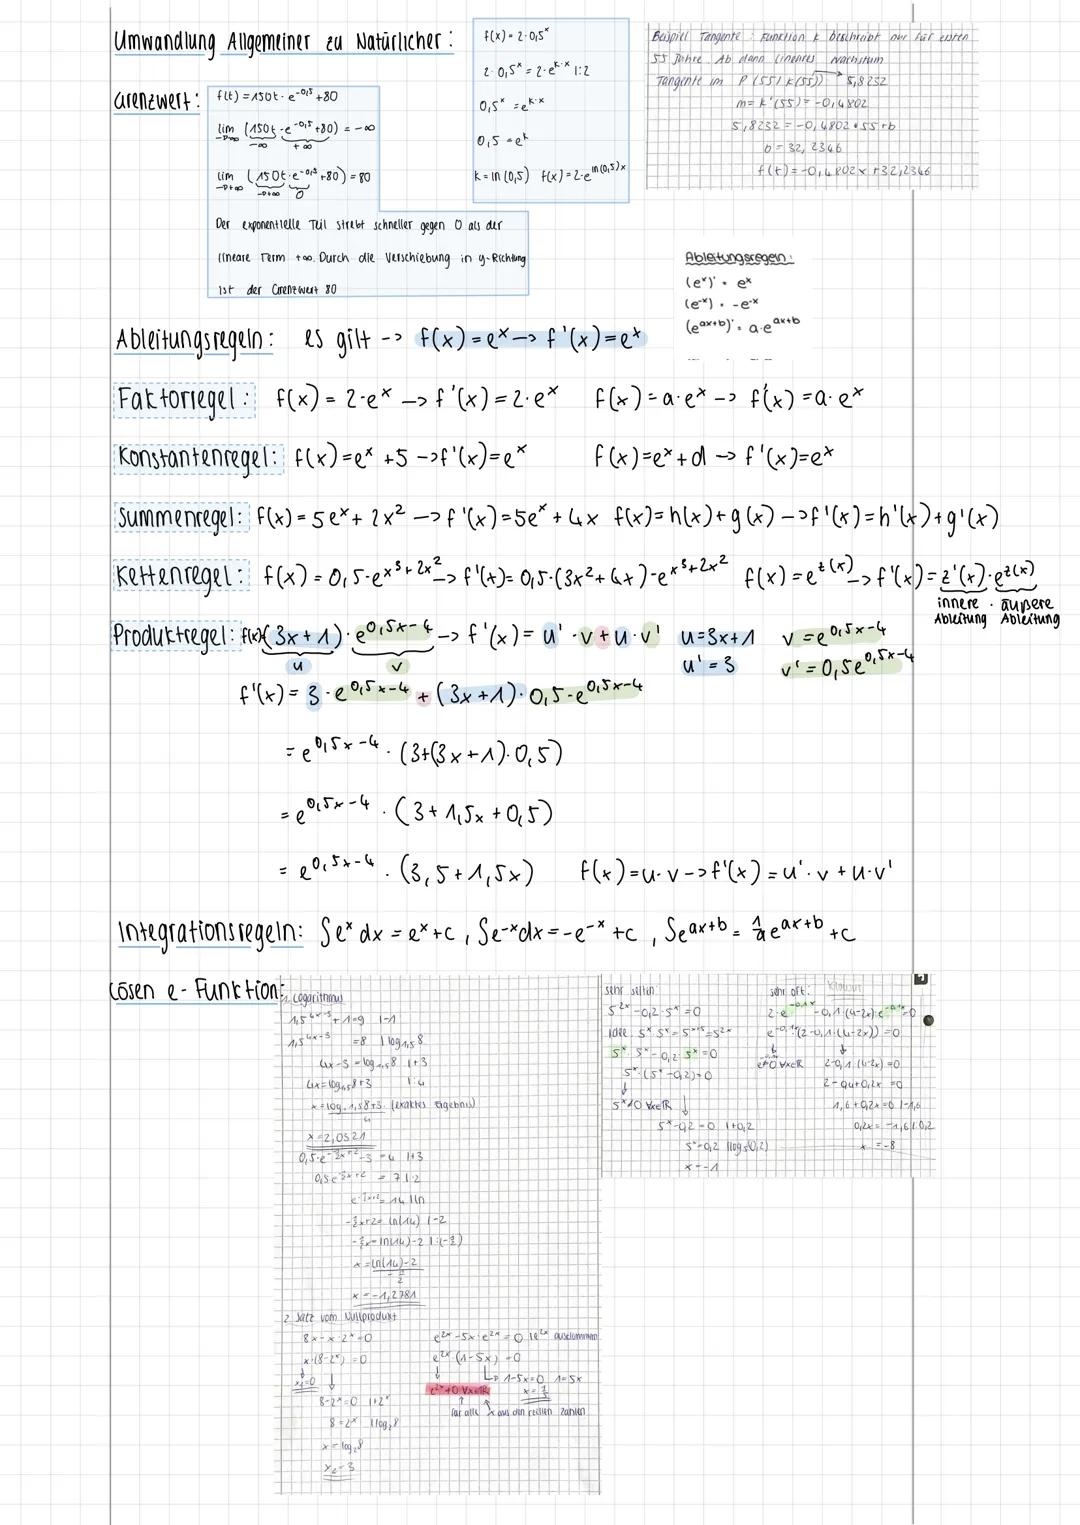 Umwandlung Allgemeiner zu Natürlicher:
f(x) = 2·0,5ˣ
2·0,5ˣ = 2·e^(k·x) |:2
0,5ˣ = e^(k·x)
0,5 = e^k
k = ln(0,5) f(x) = 2·e^(ln(0,5)x)
Beispiel Tangente: Funktion k beschreibt nur für ersten
55 Jahre. Ab dann lineares Wachstum
Tangente im P(55|k(55)) → 5,8232
m = k'(55) = -0,4802
5,8232 = -0,4802·55+b
b = 32,2346
f(t) = -0,4802x+32,2346
Grenzwert:
f(t) = 150t·e^(-0,5)+80
lim (150t·e^(-0,5)+80) = -∞
-∞ +∞
lim (150t·e^(-0,5)+80) = 80
→+∞ 0
Der exponentielle Teil strebt schneller gegen 0 als der
lineare Term +∞. Durch die Verschiebung in y-Richtung
ist der Grenzwert 80
Ableitungsregeln:
(eˣ)' = eˣ
(e⁻ˣ) = -e⁻ˣ
(e^(ax+b))' = a·e^(ax+b)
Ableitungsregeln: es gilt -> f(x) = eˣ -> f'(x) = eˣ
Faktorregel: f(x) = 2·eˣ -> f'(x) = 2·eˣ f(x) = a·eˣ -> f'(x) = a·eˣ
Konstantenregel: f(x) = eˣ+5 -> f'(x) = eˣ f(x) = eˣ+d -> f'(x) = eˣ
Summenregel: f(x) = 5eˣ+2x² -> f'(x) = 5eˣ+4x f(x) = h(x)+g(x) -> f'(x) = h'(x)+g'(x)
Kettenregel: f(x) = 0,5·e^(x³+2x²) -> f'(x) = 0,5·(3x²+4x)·e^(x³+2x²) f(x) = e^(z(x)) -> f'(x) = z'(x)·e^(z(x))
innere · äußere
Ableitung Ableitung
Produktregel: f(x)(3x+1)·e^(0,5x-4) -> f'(x) = u'·v+u·v' u=3x+1 v=e^(0,5x-4)
u v u'=3 v'=0,5e^(0,5x-4)
f'(x) = 3·e^(0,5x-4)+(3x+1)·0,5·e^(0,5x-4)
= e^(0,5x-4)·(3+(3x+1)·0,5)
= e^(0,5x-4)·(3+1,5x+0,5)
= e^(0,5x-4)·(3,5+1,5x) f(x) = u·v -> f'(x) = u'·v+u·v'
Integrationsregeln: ∫eˣdx = eˣ+c, ∫e⁻ˣdx = -e⁻ˣ+c, ∫e^(ax+b) = 1/a e^(ax+b)+c
Lösen e-Funktion:
1. Logarithmus
1,5^(4x-3)+1=9 |-1
1,5^(4x-3) =8 |log₁,₅8
4x-3=log₁,₅8 |+3
4x=log₁,₅8+3 |:4
(exaktes Ergebnis)
x=2,0321
=4 |+3
=7 |·2
=14 |ln
=ln(14) |-2
=ln(14)-2
x=-1,2781
2. Satz vom Nullprodukt
8x-x·2ˣ=0
x·(8-2ˣ)=0
x₁=0
8-2ˣ=0 |+2ˣ
8=2ˣ |log₂8
x=log₂8
x₂=3
e^(2x)-5x·e^(2x)=0 |e^(2x) ausklammern
e^(2x)·(1-5x)=0
1-5x=0 1=5x
e^(2x)≠0 ∀x∈ℝ
für alle x aus den reellen Zahlen
sehr selten:
5^(2x)-0,2·5ˣ=0
Idee: 5ˣ·5ˣ=5^(x+x)=5^(2x)
5ˣ·5ˣ-0,2·5ˣ=0
5ˣ·(5ˣ-0,2)=0
5ˣ≠0 ∀x∈ℝ
5ˣ-0,2=0 |+0,2
5ˣ=0,2 |log₅(0,2)
x=-1
sehr oft: Klausur
2·e^(-0,1x)-0,1·(4-2x)·e^(-0,1x)=0
e^(-0,1x)(2-0,1·(4-2x))=0
2-0,1·(4-2x)=0
1,6+0,2x=0 |-1,6
0,2x=-1,6 |:0,2
x=-8